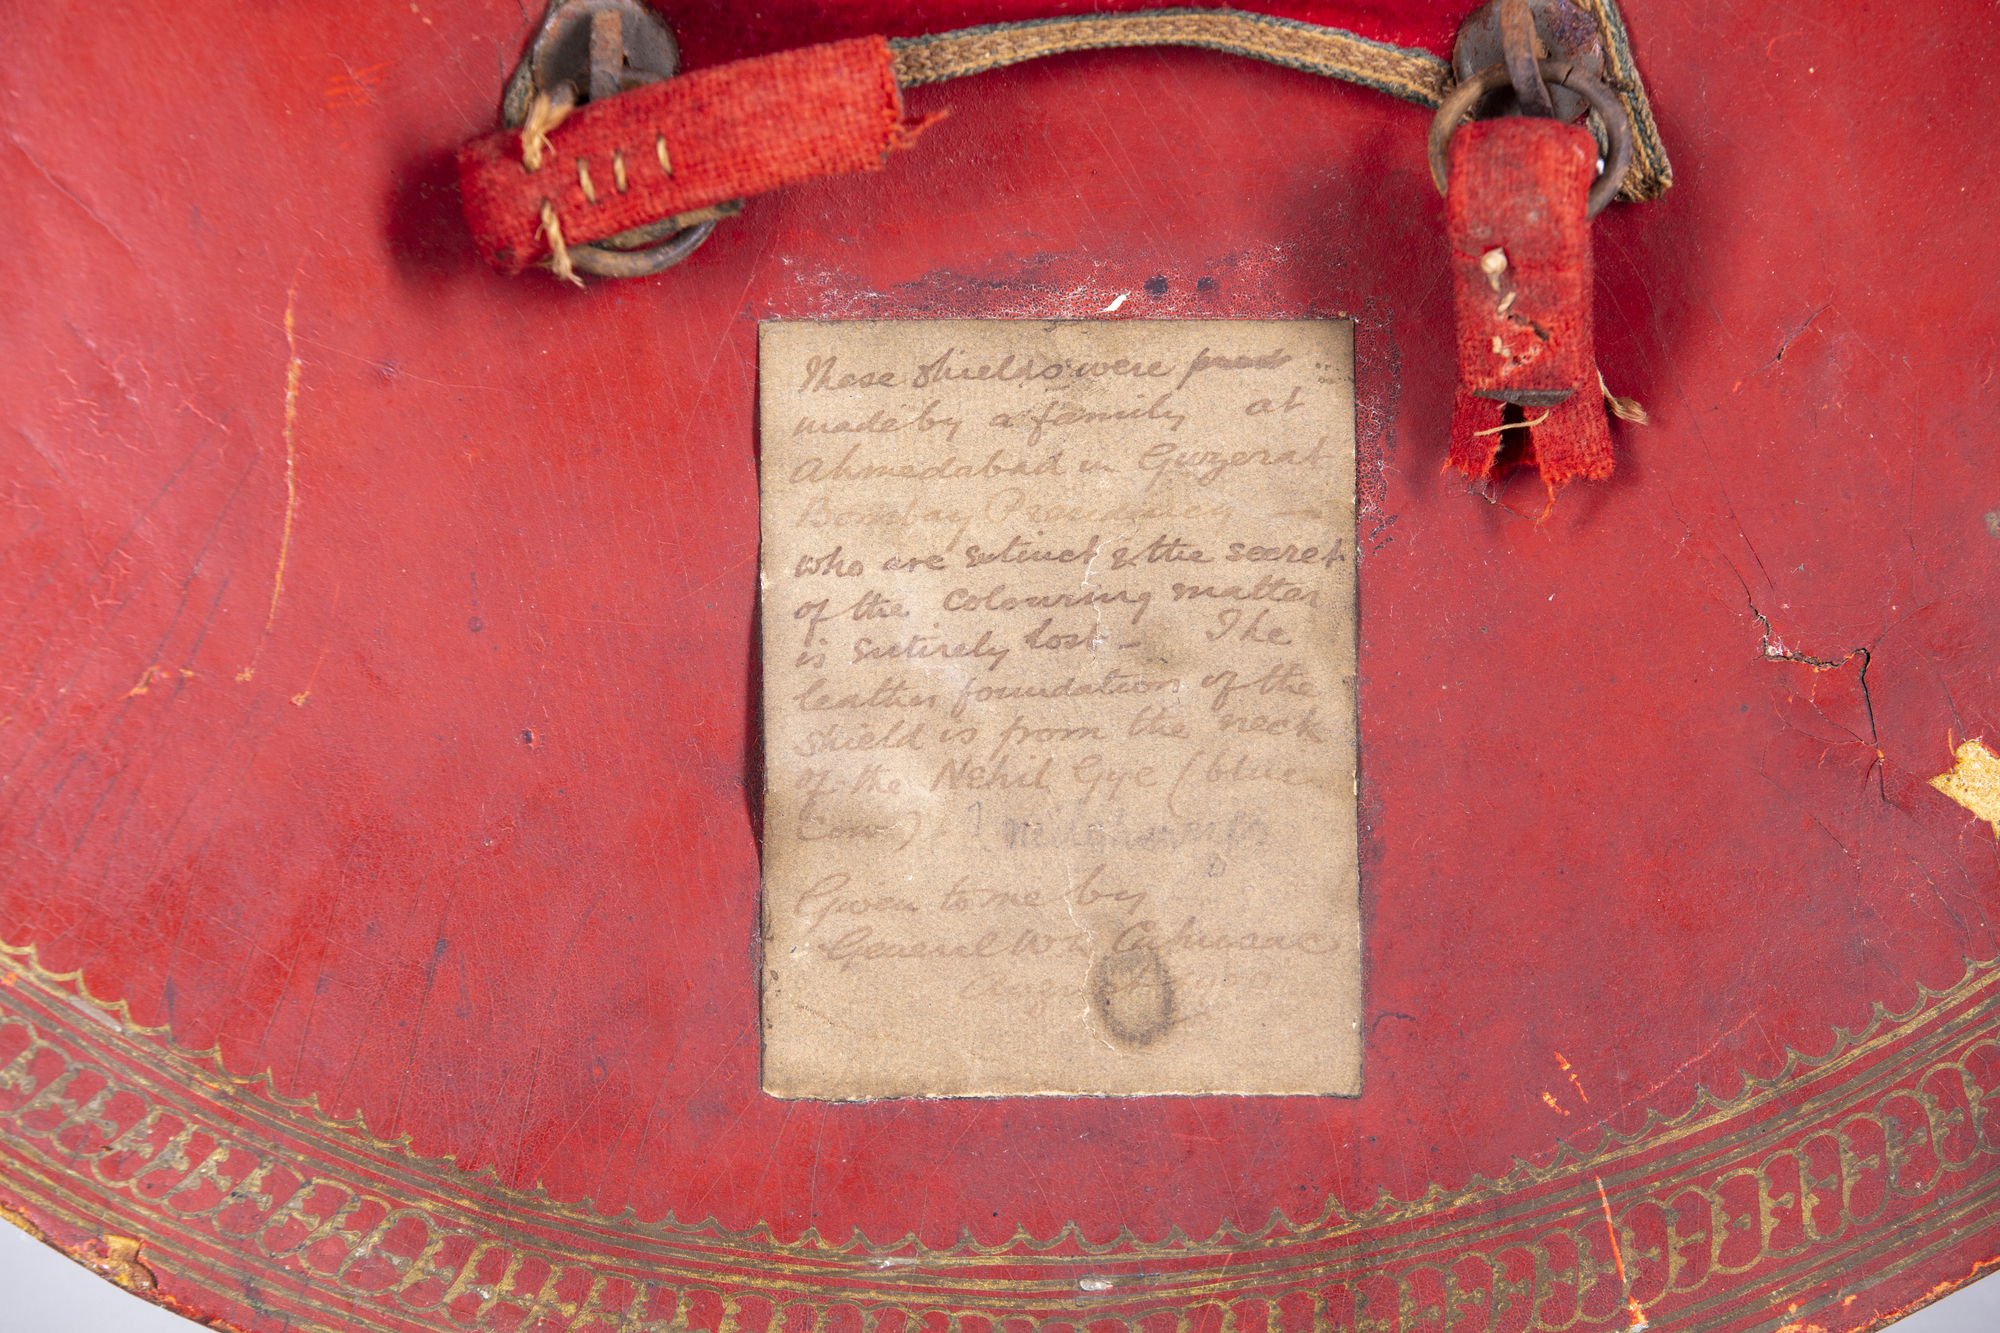 These shields were
made by a family at
Ahmedabad in Guzerat
Bombay Presidency —
who are extinct & the secret
of the colouring matter
is entirely lost – The
leather foundation of the
shield is from the neck
of the Nehil Gye (blue
Cow).
Given to me by
General Wm Cahusac
August